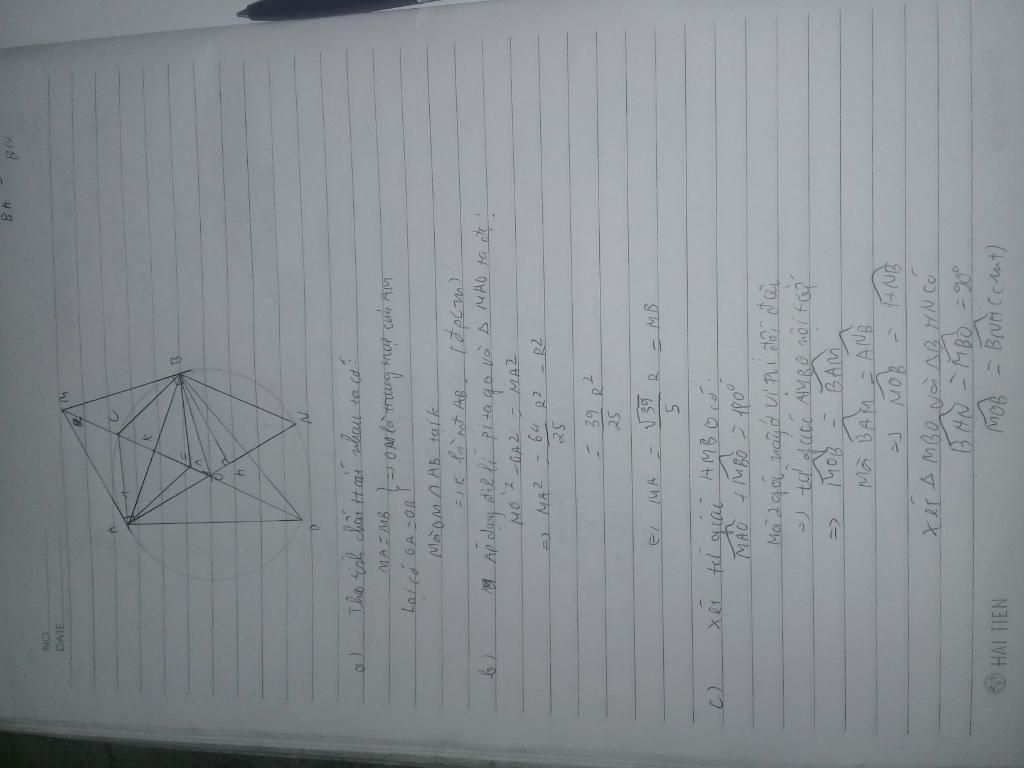 BA = BN
NO.
DATE
A
M
B
C
K
E
O
I
H
N
D
a) Theo tính chất tiếp nhau ta có:
MA = MB
Lại có OA = OB
⇒ OM là trung trực của AB
Mà OM ∩ AB tại K
⇒ K là tđ AB. (đpcm)
b) Áp dụng định lí pi ta go vào Δ MAO ta đc:
MO² - OA² = MA²
⇒ MA² = 64/25 R² - R²
= 39/25 R²
⇔ MA = √39/5 R = MB
c) Xét tứ giác AMBO có:
MAO + MBO = 180°
Mà 2 góc này ở vị trí đối đỉnh
⇒ tứ giác AMBO nội tiếp
⇒ MOB = BAM
Mà BAM = ANB
⇒ MOB = HNB
Xét Δ MBO và Δ BHN có
BHN = MBO = 90°
MOB = BNH (cmt)
HẢI TIẾN